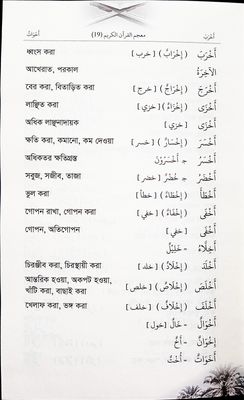 أَخْرَبَ معجم القرآن الكريم (19) أَخَوَاتٌ
أَخْرَبَ ( إِخْرَابٌ ) [ خرب ] ধ্বংস করা
الآخِرَةُ আখেরাত, পরকাল
أَخْرَجَ ( إِخْرَاجٌ ) [ خرج ] বের করা, বিতাড়িত করা
أَخْزَى ( إِخْزَاءٌ ) [ خزي ] লাঞ্ছিত করা
أَخْزَى [ خزي ] অধিক লাঞ্ছনাদায়ক
أَخْسَرَ ( إِخْسَارٌ ) [ خسر ] ক্ষতি করা, কমানো, কম দেওয়া
أَخْسَرُ ج أَخْسَرُوْنَ অধিকতর ক্ষতিগ্রস্ত
أَخْضَرُ ج خُضْرٌ [ خضر ] সবুজ, সজীব, তাজা
أَخْطَأَ ( إِخْطَاءٌ ) [ خطأ ] ভুল করা
أَخْفَى ( إِخْفَاءٌ ) [ خفي ] গোপন রাখা, গোপন করা
أَخْفَى [ خفي ] গোপন, অতিগোপন
أَخِلَّاءُ - خَلِيْلٌ
أَخْلَدَ ( إِخْلَادٌ ) [ خلد ] চিরঞ্জীব করা, চিরস্থায়ী করা
أَخْلَصَ ( إِخْلَاصٌ ) [ خلص ] আন্তরিক হওয়া, অকপট হওয়া,
খাঁটি করা, বাছাই করা
أَخْلَفَ ( إِخْلَافٌ ) [ خلف ] খেলাফ করা, ভঙ্গ করা
أَخْوَالٌ - خَالٌ [ خول ]
إِخْوَانٌ - أَخٌ
أَخَوَاتٌ - أُخْتٌ